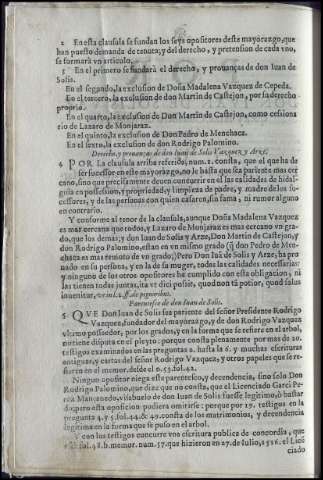 2 En esta clausula se fundan los seys opositores deste mayorazgo, que
han puesto demanda de tenuta; y del derecho, y pretension de cada vno,
se formarà vn articulo.
3 En el primero se fundarà el derecho, y prouanças de don Iuan de
Solis.
En el segundo, la exclusion de Doña Madalena Vazquez de Cepeda.
En el tercero, la exclusion de don Martin de Castejon, por su derecho
proprio.
En el quarto, la exclusion de Don Martin de Castejon, como cessiona
rio de Lazaro de Monjaraz.
En el quinto, la exclusion de Don Pedro de Menchaca.
En el sexto, la exclusion de don Rodrigo Palomino.
Derecho, y prouanças de don Iuan de Solis Vazquez y Arze.
4 POR La clausula arriba referido, num. 1. consta, que el que ha de
ser sucessor en este mayorazgo, no le basta que sea pariente mas cer
cano, sino que precisamente deuen concurrir en el las calidades de hidal-
guia en possession, y propiedad, y limpieza de padre, y madre de los su-
cessores, y de las personas con quien casaren, sin fama, ni rumor alguno
en contrario.
Y conforme al tenor de la clausula, aunque Doña Madalena Vazquez
es mas cercana que todos, y Lazaro de Monjaraz es mas cercano vn gra-
do, que los demas; y don Iuan de Solis y Arze, Don Martin de Castejon, y
don Rodrigo Palomino, estan en vn mismo grado (q̃ don Pedro de Men-
chaca es mas remoto de vn grado,) Pero Don Iuã de Solis y Arze, ha pro
uado en su persona, y en la de su muger, todas las calidades necessarias:
y ninguno de los otros opositores ha cumplido con esta obligacion, ni
las tienen todas juntas, ità vt dici possit, quod non tã potior, quod solus
inuenitur,
Parentesco de don Iuan de Solis.
5 QVE Don Iuan de Solis sea pariente del señor Presidente Rodrigo
Vazquez, fundador del mayorazgo, y de don Rodrigo Vazquez
vltimo possedor, por los grados, y en la forma que se refiere en el arbol,
no tiene disputa en el pleyto: porque consta plenamente por mas de 20.
testigos examinados en las preguntas 2. hasta la 6. y muchas escrituras
antiguas, y cartas del señor Rodrigo Vazquez, y otros papeles que se re-
fieren en el memor. desde el n. 53. fol. 42.
Ningun opositor niega este parentesco, y decendencia, sino solo Don
Rodrigo Palomino, que dize que no consta, que el Licenciado Garci Pe-
rez Manzanedo, visabuelo de don Iuan de Solis fuesse legitimo, ò bastar
do, pero esta oposicion pudiera omitirse: porque por 17. testigos en la
pregunta 4. y 5. fol. 34. & 49. consta de los matrimonios, y decendencia
legitima en la forma que se puso en el arbol.
Y con los testigos concurre vna escritura publica de concordia, que
fol. 48. b. memor. num. 57. que hizieron en 27. de Iulio, 1516. el Licẽ
ciado